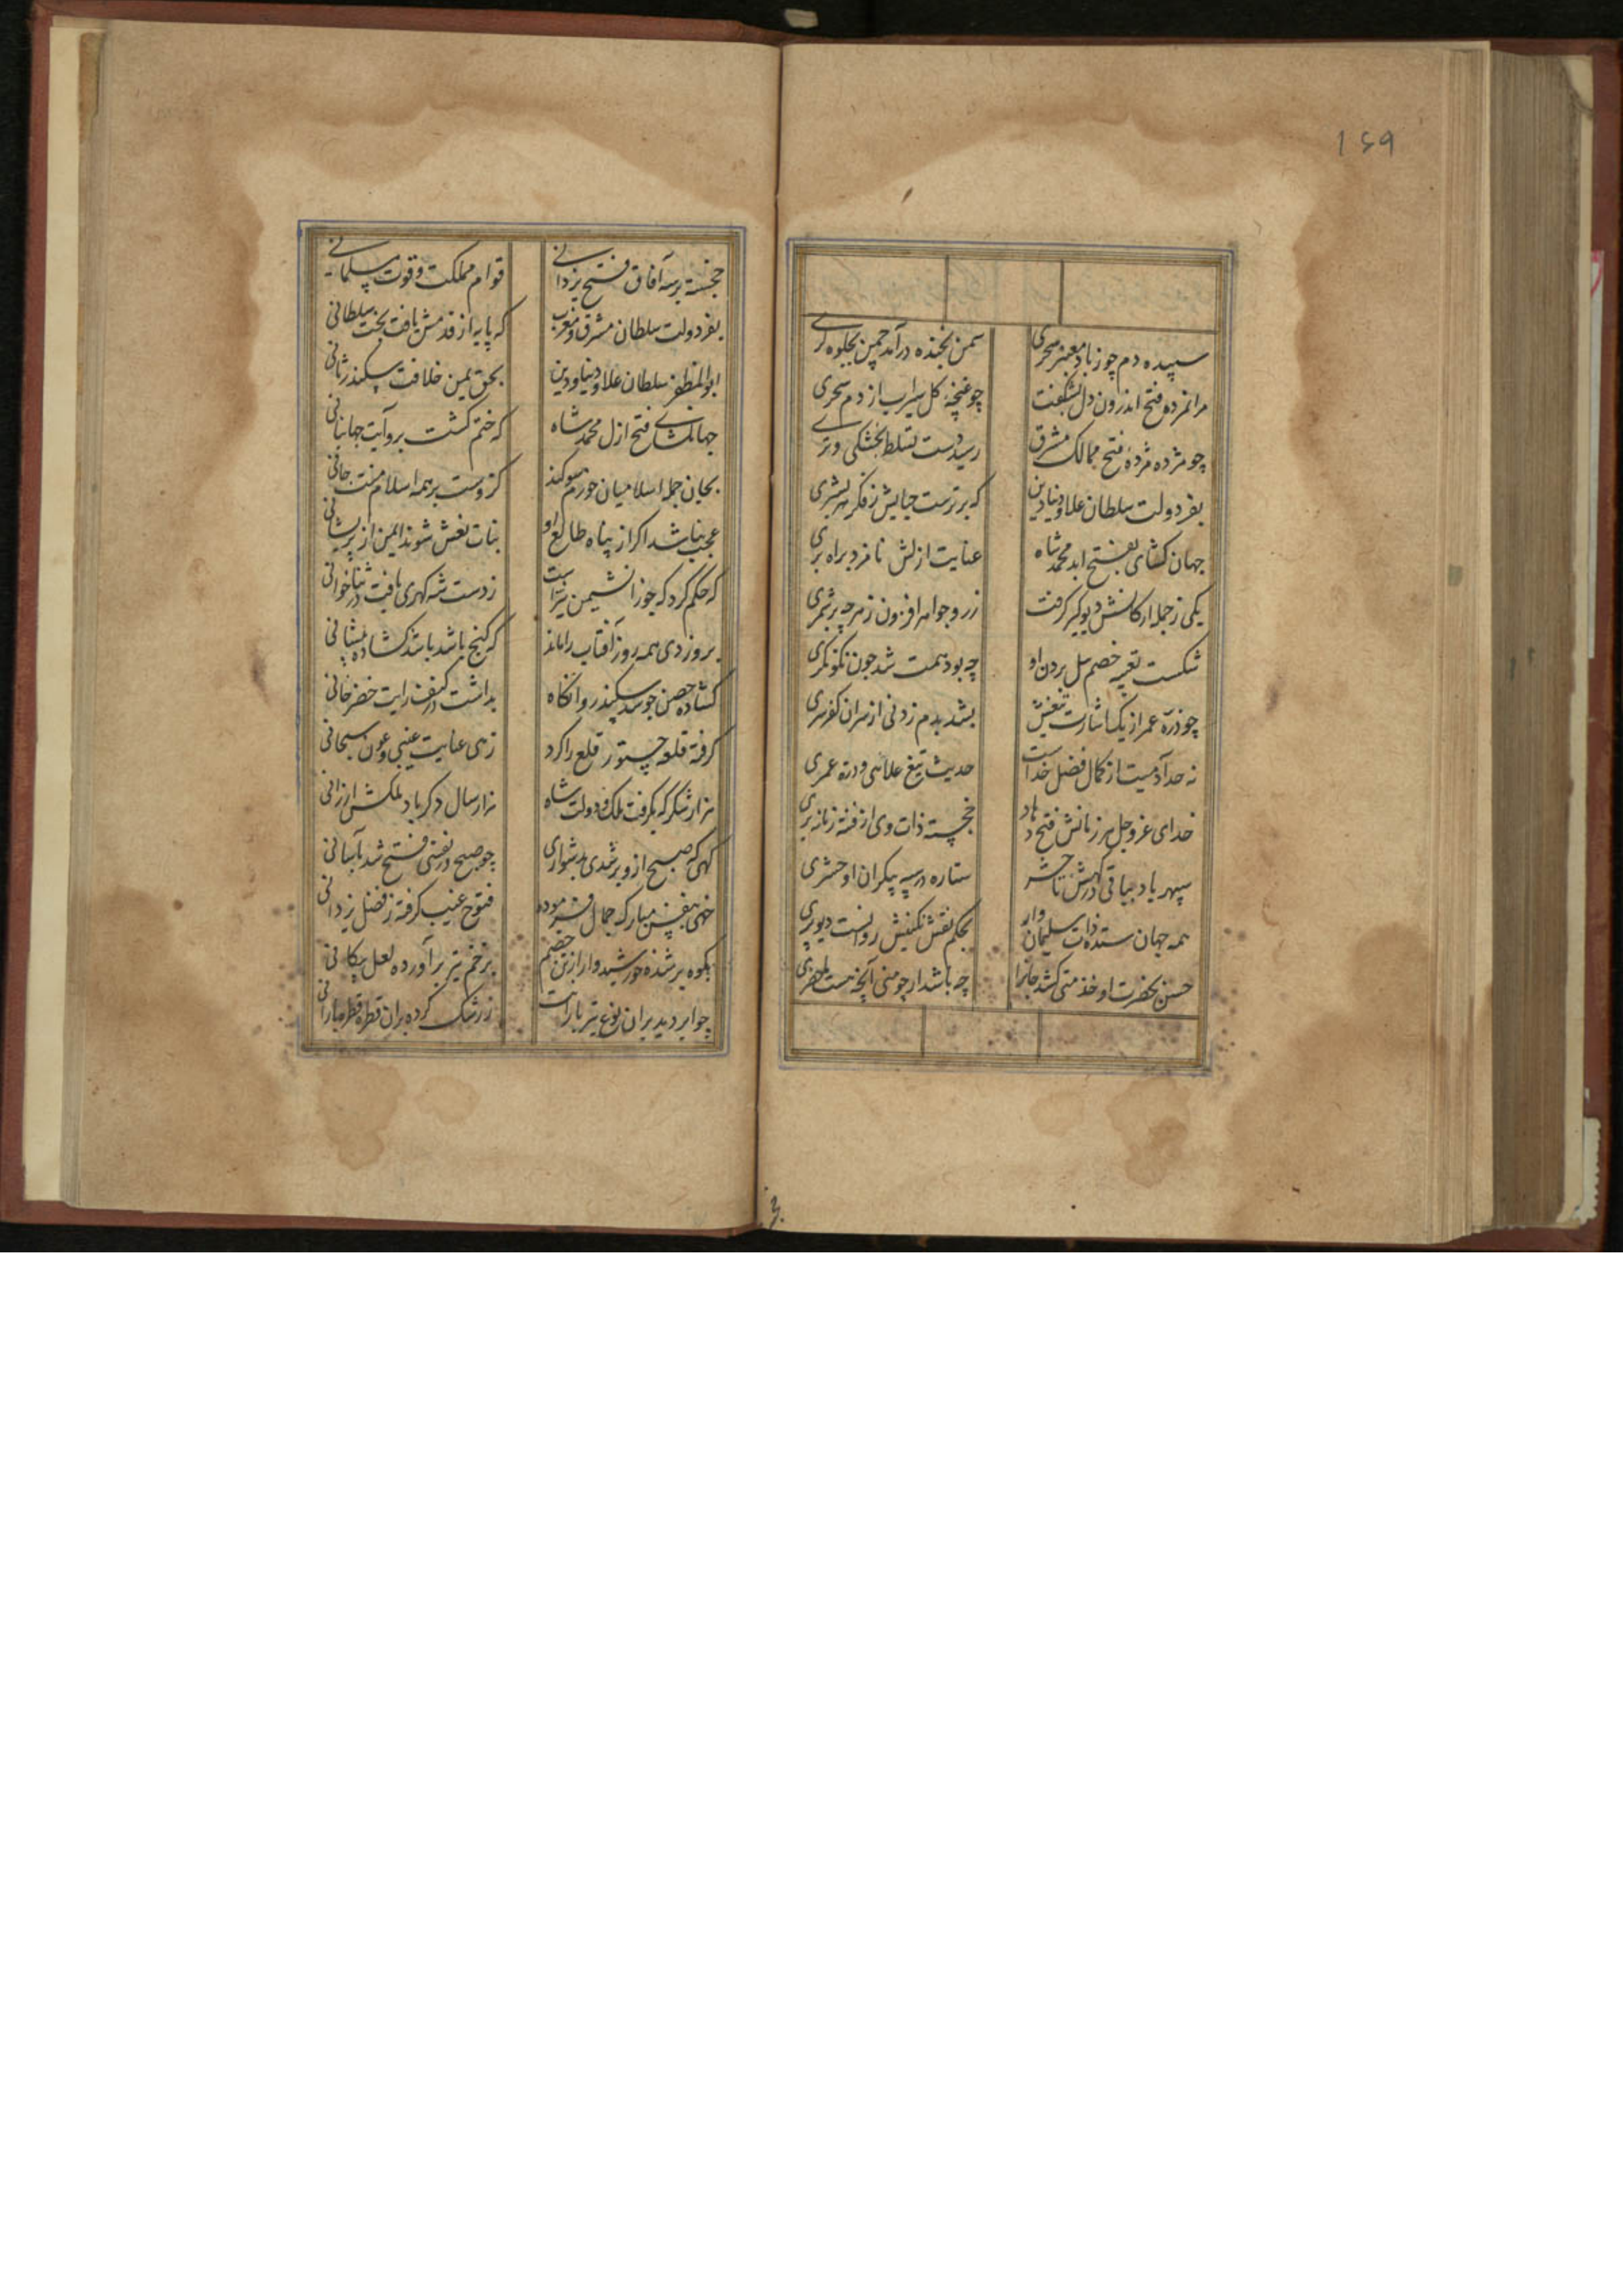 169
سپیده دم چو ز باد معنبر سحری سمن بخنده درآمد چمن بجلوه کری
مرا ز مژده فتح اندرون دل بشکفت چو غنچهٔ کل سیراب از دم سحری
چو مژده مژدهٔ فتح ممالک مشرق رسید دست تسلط بخشکی و تری
بفر دولت سلطان علاء دنیا و دین که برترست جنابش ز فکر بشری
جهان کشای بفتح ابد محمد شاه عنایت ازلش نامزد براه بری
یکی ز جمله ارکانش دیوکیر کرفت زر و جواهر افزون ز هرچه برشمری
شکست خصم بردن او چه بود همت شد چون نکو نکری
چو درهٔ عمر از یک اشارت تیغش بشد بدم زدنی از سران کفر سری
نه حد آدمیست از کمال فضل خداست حدیث تیغ علائی و دره عمری
خدای عز و جل هر زمانش فتح دهاد خجسته ذات وی از فتنه زمانه بری
سپهر باد بباقی درکهش تا حشر ستاره در سپه بیکران او حشری
همه جهان ستده ذات سلیمان وار بحکم نقش نکینش رواست دیو و پری
حسن بحضرت او خدمتی کشد جانرا چه باشد ار چو منی آنچه هست ماحضری
خجسته بر سر آفاق فتح یزدانی قوام مملکت و قوت مسلمانی
بفر دولت سلطان مشرق و مغرب که پایه از قدمش یافت تخت سلطانی
ابوالمظفر سلطان علاء دنیا و دین بحق یمین خلافت سکندر ثانی
جهانکشای فتح ازل محمد شاه که ختم کشت برو آیت جهانبانی
بجان جمله اسلامیان خورم سوکند کزوست بر همه اسلام منت جانی
عجب نباشد اکر از پناه طالع او بنات نعش شوند ایمن از پریشانی
که حکم کرد که جوزا نشیمن تیر است ز دست شه کهری یافت در ثناخوانی
بروز دی همه روز آفتاب را ماند که کنج باشد باشد کشاده پیشانی
کشاده حصن چو سد سکندر وانکاه بداشت در کنف رایت خضرخانی
کرفته قلعه چیتور قلع را کرد زهی عنایت غیبی و عون سبحانی
هزار شکر که بکرفت ملک و دولت شاه هزار سال دکر باد ملکش ارزانی
کهی که صبح ازو برشدی بدشواری چو صبح در نفسی فتح شد بآسانی
خهی بنفس مبارک جمال فرموده فتوح غیب کرفته ز فضل یزدانی
بکوه بر شده خورشیدوار از تن خصم بزخم تیر برآورده لعل پیکانی
چو ابر دید بران نوع تیر بارانت ز رشک کرده بران قطره قطره بارانی